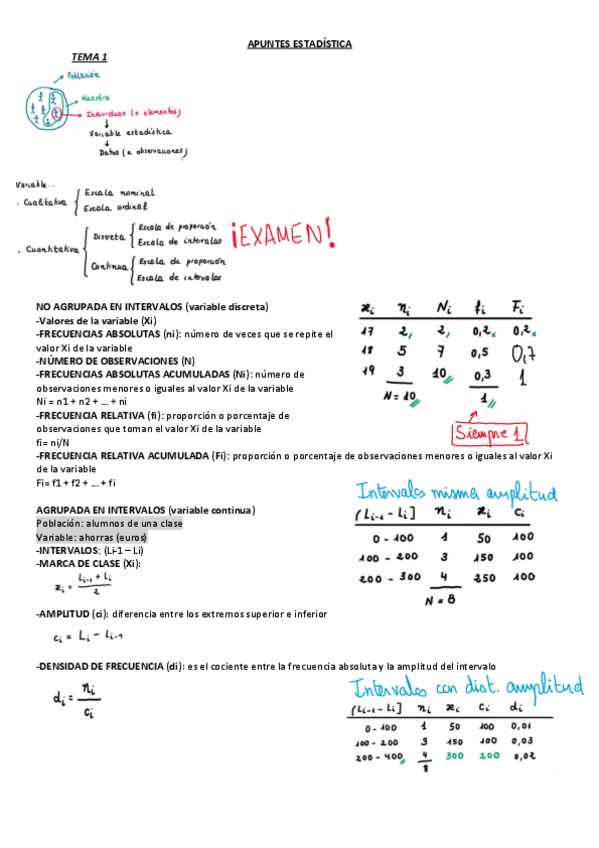 APUNTES ESTADÍSTICA
TEMA 1
Población
Muestra
Individuos (o elementos)
Variable estadística
Datos (u observaciones)
Variable...
. Cualitativa { Escala nominal
Escala ordinal
. Cuantitativa { Discreta { Escala de proporción
Escala de intervalos
Continua { Escala de proporción
Escala de intervalos
¡EXAMEN!
NO AGRUPADA EN INTERVALOS (variable discreta)
-Valores de la variable (Xi)
-FRECUENCIAS ABSOLUTAS (ni): número de veces que se repite el
valor Xi de la variable
-NÚMERO DE OBSERVACIONES (N)
-FRECUENCIAS ABSOLUTAS ACUMULADAS (Ni): número de
observaciones menores o iguales al valor Xi de la variable
Ni = n1 + n2 + ... + ni
-FRECUENCIA RELATIVA (fi): proporción o porcentaje de
observaciones que toman el valor Xi de la variable
fi= ni/N
-FRECUENCIA RELATIVA ACUMULADA (Fi): proporción o porcentaje de observaciones menores o iguales al valor Xi
de la variable
Fi= f1 + f2 + ... + fi
xi ni Ni fi Fi
17 2 2 0,2 0,2
18 5 7 0,5 0,7
19 3 10 0,3 1
N = 10 1
Siempre 1
AGRUPADA EN INTERVALOS (variable continua)
Población: alumnos de una clase
Variable: ahorras (euros)
-INTERVALOS: (Li-1 – Li)
-MARCA DE CLASE (Xi):
xi = Li-1 + Li / 2
Intervalos misma amplitud
(Li-1 - Li] ni xi ci
0 - 100 1 50 100
100 - 200 3 150 100
200 - 300 4 250 100
N = 8
-AMPLITUD (ci): diferencia entre los extremos superior e inferior
ci = Li - Li-1
-DENSIDAD DE FRECUENCIA (di): es el cociente entre la frecuencia absoluta y la amplitud del intervalo
di = ni / ci
Intervalos con dist. amplitud
(Li-1 - Li] ni xi ci di
0 - 100 1 50 100 0,01
100 - 200 3 150 100 0,03
200 - 400 4 300 200 0,02
8